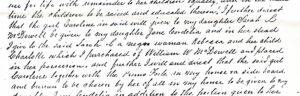 for life with remainder to her children equally,
time the children to be raised and educated thereon. I further direct
that the girl Caroline in said will given to my daughter Sarah L.
McDowell be given to my daughter Jane and in her stead
I give to the said Sarah L. a negro woman Rebecca and her child
Charlotte which I purchased of William McDowell and placed
in her possession, and further I will and direct that the said girl
Caroline together with the Piano Forte in my house on said board
and proven to be chosen by her of all in my house to be given to my
in addition to the portion given to her